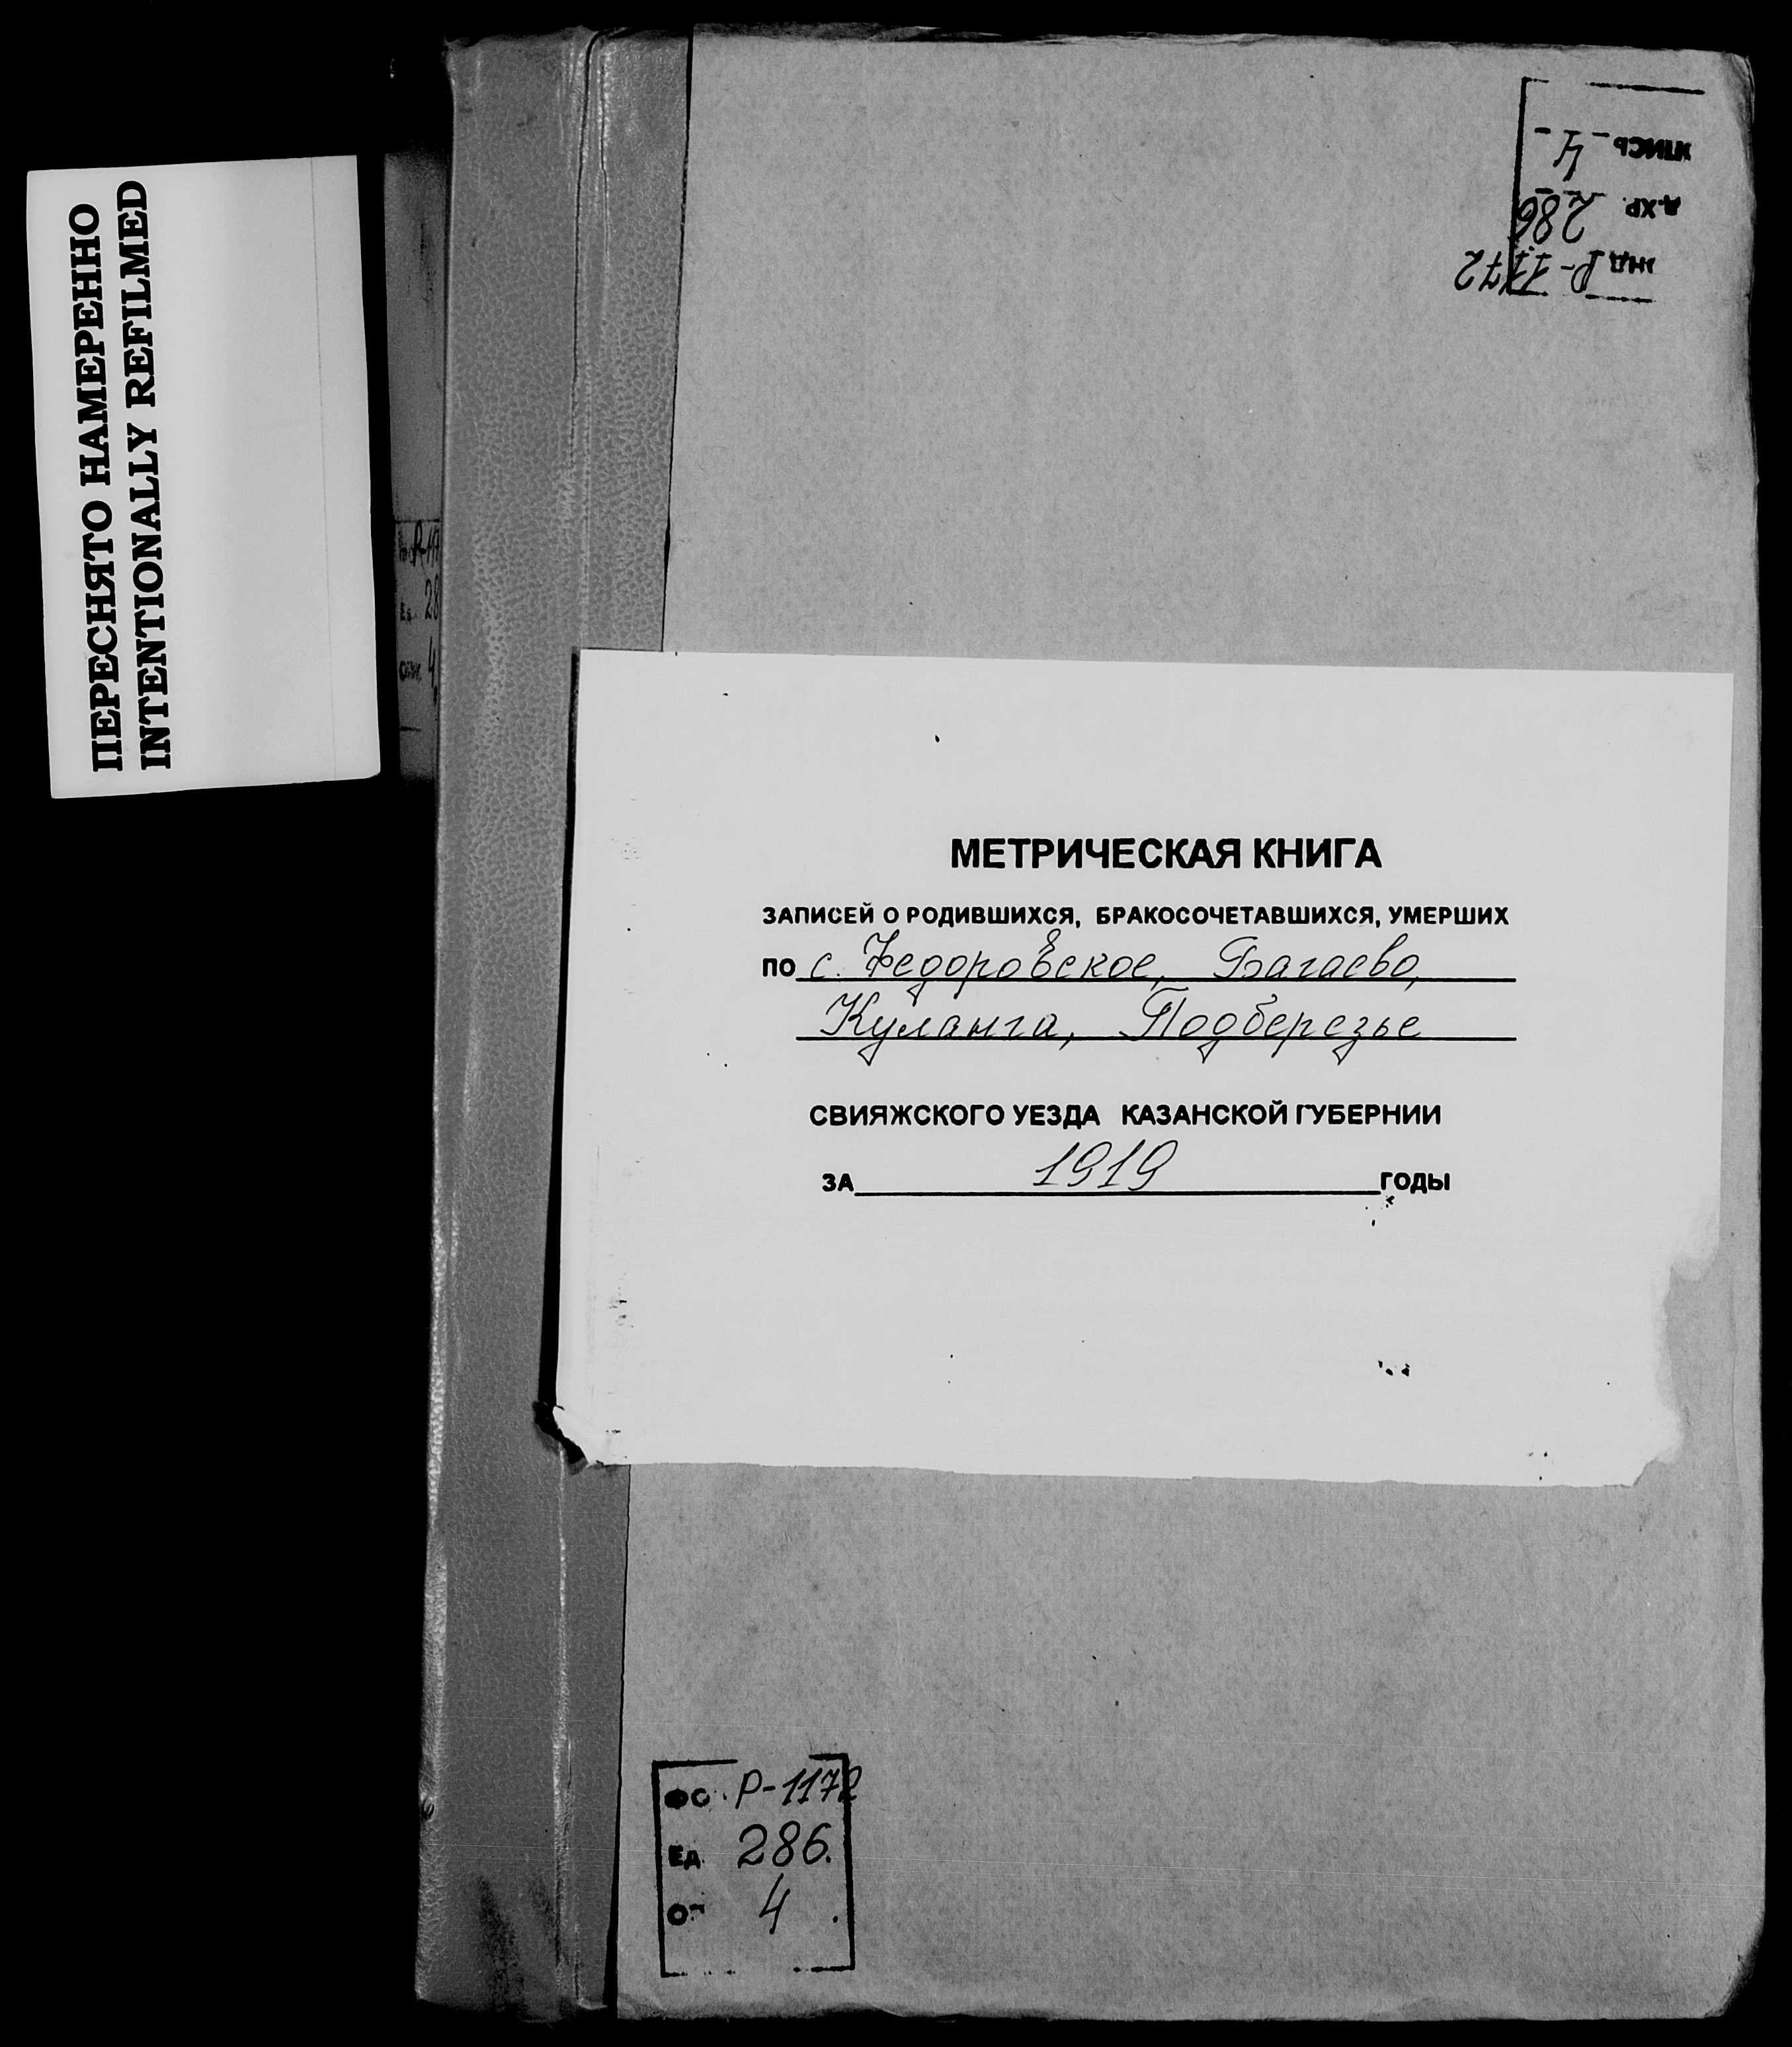 ПЕРЕСНЯТО НАМЕРЕННО
INTENTIONALLY REFILMED
Р-1172
Д.ХР. 286
4
28
4
МЕТРИЧЕСКАЯ КНИГА
ЗАПИСЕЙ О РОДИВШИХСЯ, БРАКОСОЧЕТАВШИХСЯ, УМЕРШИХ
ПО с. Федоровское, Багаево,
Куланга, Подберезье
СВИЯЖСКОГО УЕЗДА КАЗАНСКОЙ ГУБЕРНИИ
ЗА 1919 ГОДЫ
ФО. Р-1172
ЕД. 286.
ОП 4